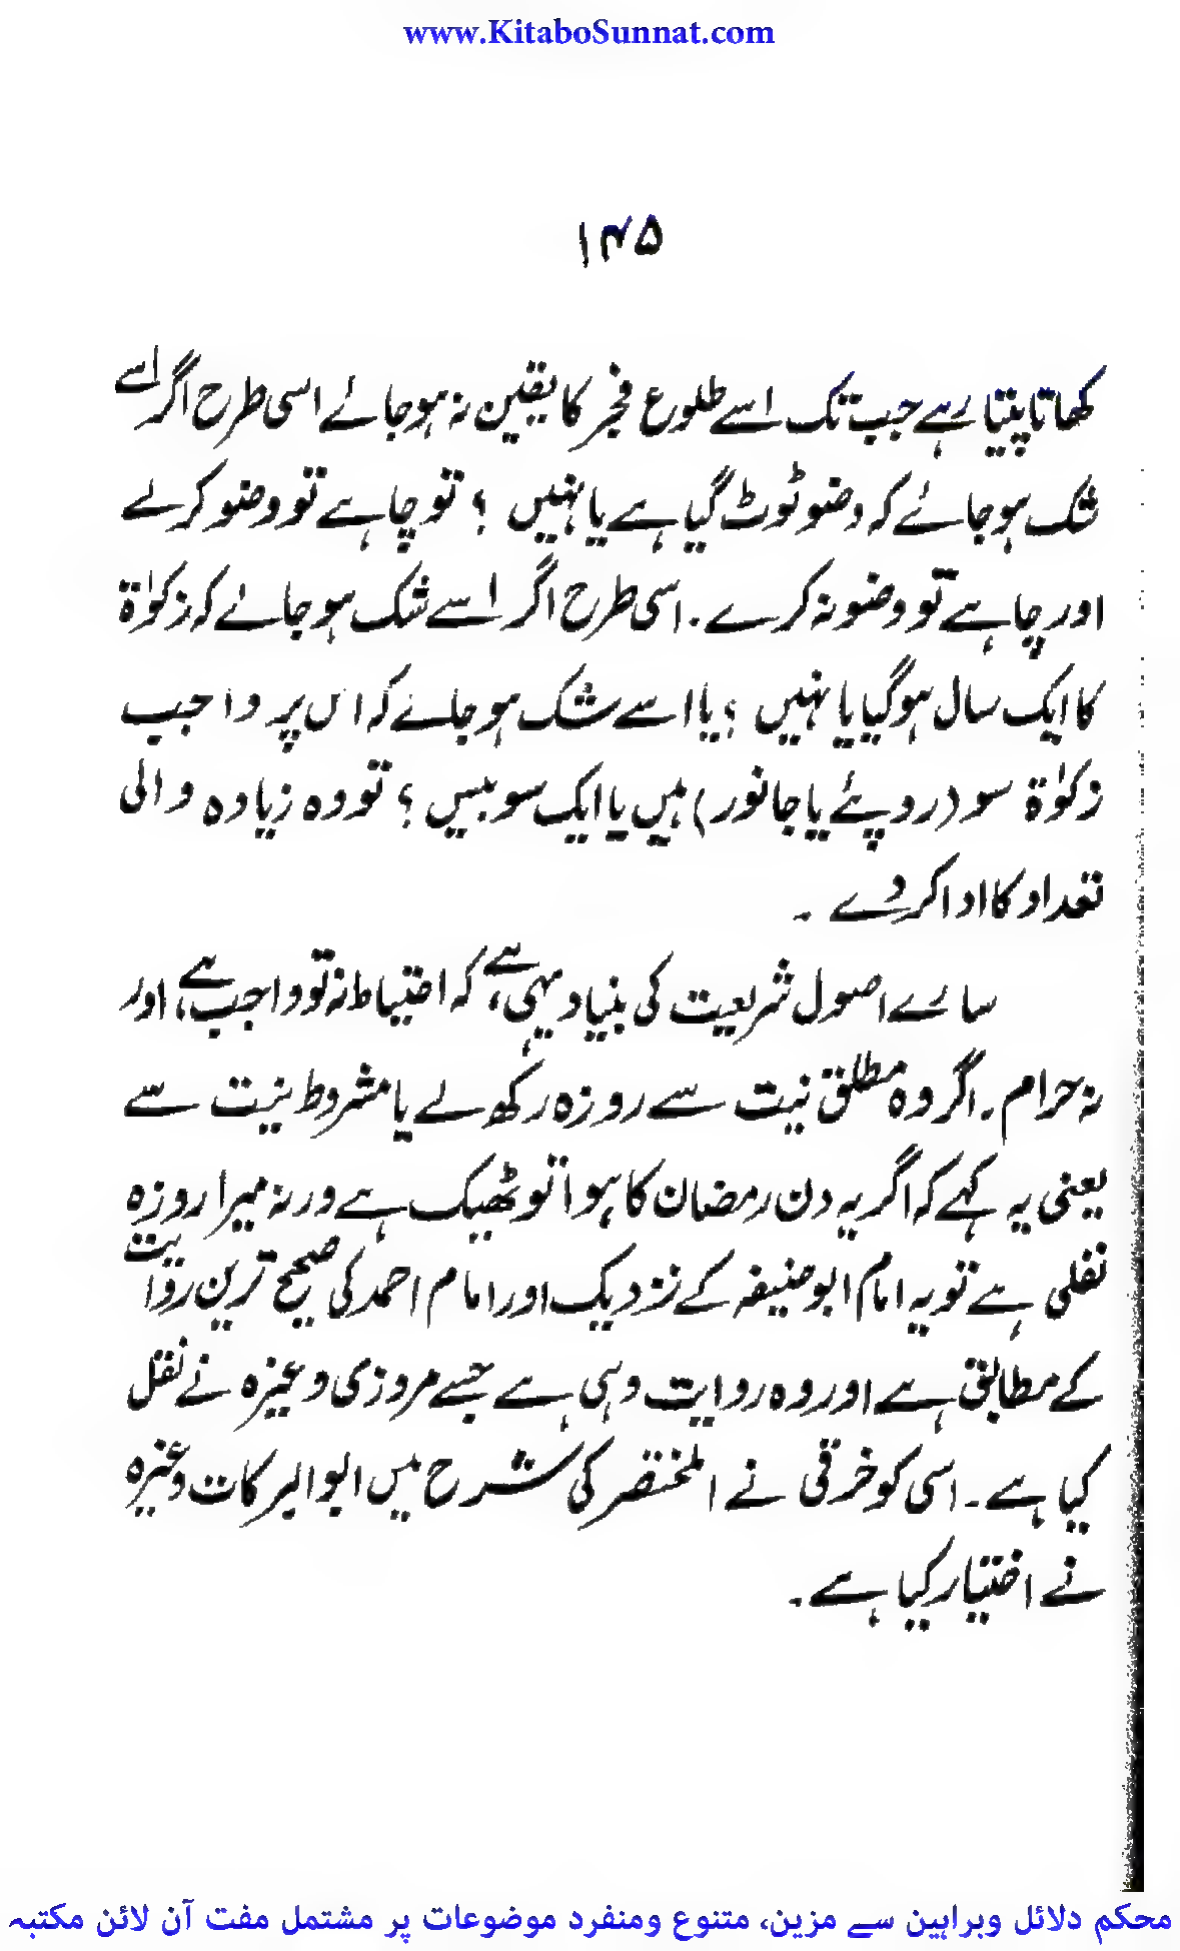 www.KitaboSunnat.com
۱۴۵
کھاتا پیتا رہے جب تک اسے طلوع فجر کا یقین نہ ہو جائے اسی طرح اگر اسے
شک ہو جائے کہ وضو ٹوٹ گیا ہے یا نہیں ؟ تو چاہے تو وضو کرلے
اور چاہے تو وضو نہ کرے ۔ اسی طرح اگر اسے شک ہو جائے کہ زکوٰۃ
کا ایک سال ہو گیا یا نہیں ؟ یا اسے شک ہو جائے کہ اس پر واجب
زکوٰۃ سو (روپئے یا جانور) ہیں یا ایک سو بیس ؟ تو وہ زیادہ والی
تعداد کا ادا کر دے ۔
سارے اصول شریعت کی بنیاد یہی ہے، کہ احتیاط نہ تو واجب ہے، اور
نہ حرام ۔ اگر وہ مطلق نیت سے روزہ رکھ لے یا مشروط نیت سے
یعنی یہ کہے کہ اگر یہ دن رمضان کا ہوا تو ٹھیک ہے ورنہ میرا روزہ
نفلی ہے تو یہ امام ابو حنیفہ کے نزدیک اور امام احمد کی صحیح ترین روایت
کے مطابق ہے اور وہ روایت وہی ہے جسے مروزی وغیرہ نے نقل
کیا ہے ۔ اسی کو خرقی نے المختصر کی شرح میں ابو البرکات وغیرہ
نے اختیار کیا ہے ۔
محکم دلائل وبراہین سے مزین، متنوع ومنفرد موضوعات پر مشتمل مفت آن لائن مکتبہ